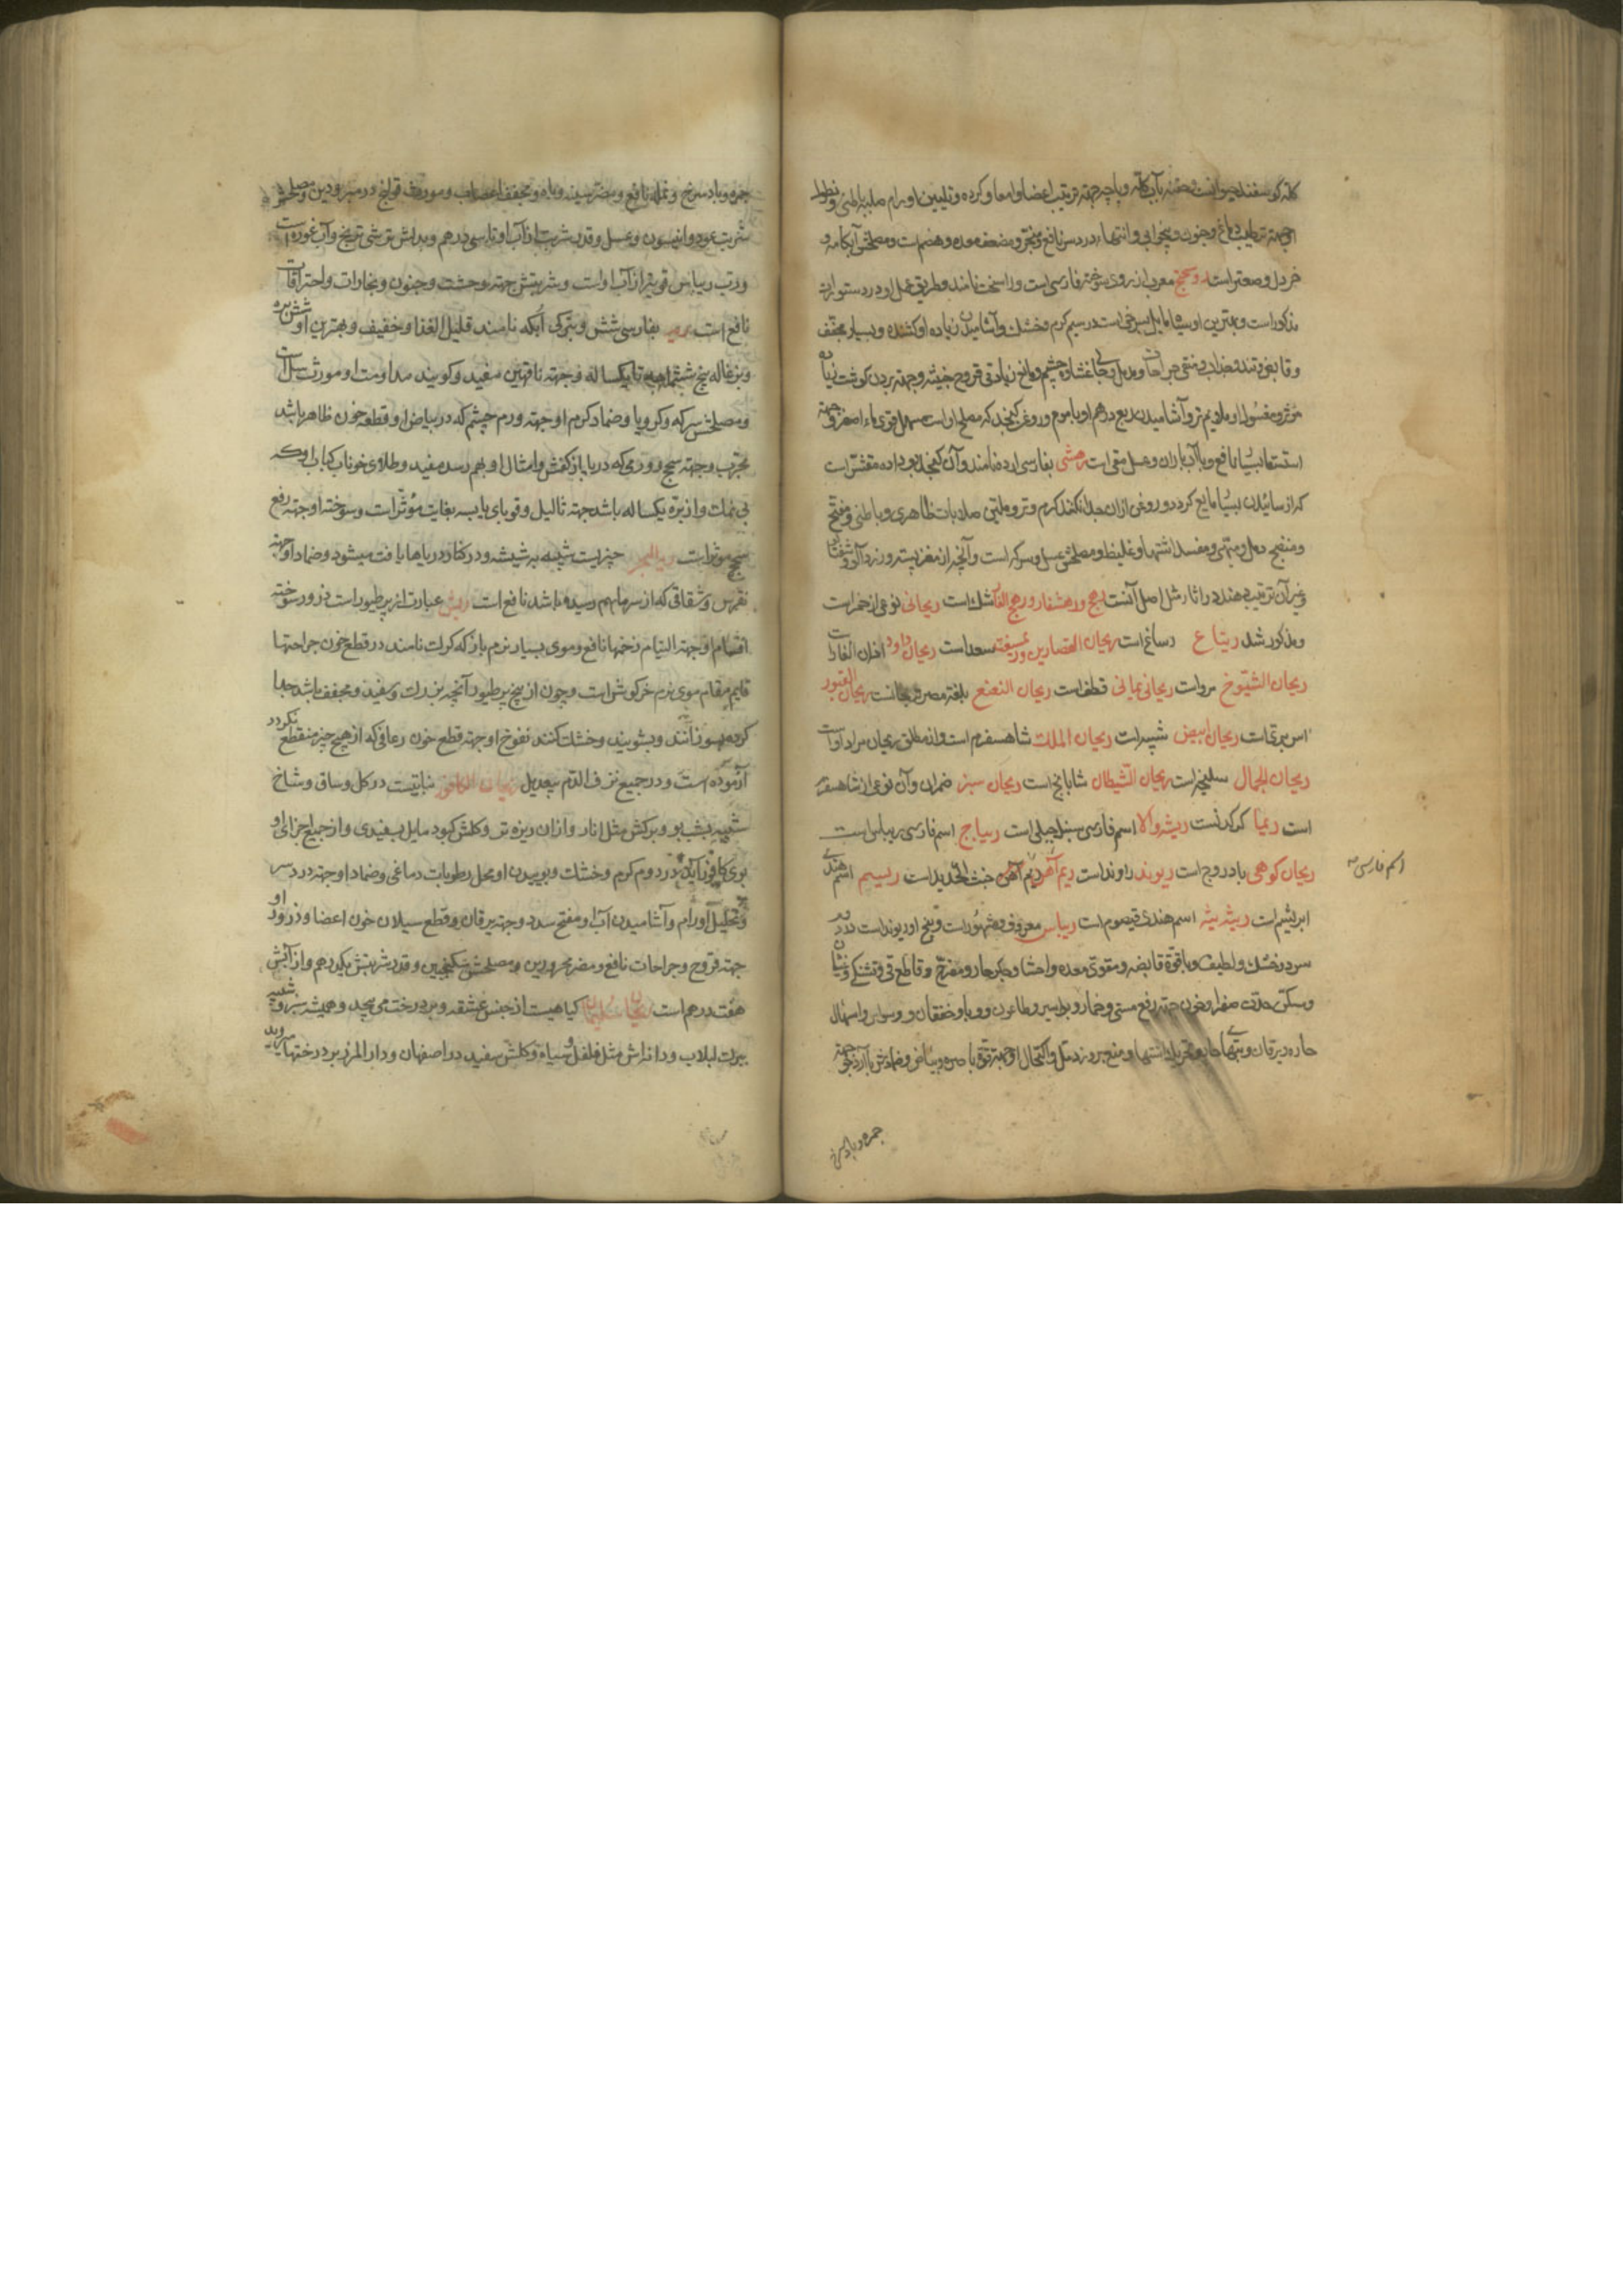 کله گوسفند حیوانست حقنه بآب کله و پاچه جهته ترتیب اعضا و امعا و کرده و تلیین اورام صلبه باطنی و نطول
او جهته ترطیب دماغ و جنون و بیخوابی و انتهاء درد سر نافع و مبخر و مضعف معده و هضم است و مصلحش آبکامه و
خردل و صعتر است روسختج معرب از روی سوخته فارسی است و راسخت نامند و طریق عمل او در دستورات
مذکور است و بهترین او سیاه مایل بسرخی است در سیم کرم و خشک و آشامیدن زیاده او کشنده و بسیار مجفف
و قابض و تند و جذاب و منقی جراحات و مدمل و جهة غشاوه چشم و مانع زیادتی قروح خبیثه و جهته بردن کوشت زیاد
مؤثر و مغسول او ملایم تر و آشامیدن ربع درهم او با موم و روغن کنجد که مصلح اوست مسهل قوی ماء اصفر و جهة
استسقا بسیار نافع و با آب باران و عسل مقی است رهشی بفارسی ارده نامند و آن کنجد بو داده مقشر است
که از سائیدن بسیار مایع کردد و روغن ازان جدا نکنند کرم و تر و ملین صلابات ظاهری و باطنی و مفتح
و منضج دمل و مبهی و مفسد اشتها و غلیظ و مصلحش عسل و سرکه است و آنچه از مغز پسته و زردآلو و شفتالو
و غیر آن ترتیب دهند در آثار مثل اصل آنست رهج و رهشفار و رهج الفار شک است ریحانی نوعی از خمر است
و مذکور شد ریتاع رساغ است ریحان القصارین و ریسفته سعد است ریحان داود اذان الفار است
ریحان الشیوخ مرو است ریحانی یمانی قطف است ریحان النعنع بلغته مصر فرنجانست ریحان القبور
اس بری است ریحان ابیض شیبه است ریحان الملک شاهسفرم است و از مطلق ریحان مراد او است
ریحان الجمال سلیخه است ریحان الشیطان شابابخ است ریحان سبز ضمران و آن نوعی از شاهسفرم
است ریما کرکدنست ریشه والا اسم فارسی سنبل جبلی است ریباج اسم فارسی ریباس است
ریحان کوهی بادروج است ریوند راوند است ریم آهن خبث الحدید است ریسیم اسم هندی
اسم فارسی
ابریشم است ریشه پیشه اسم هندی قیصوم است ریباس معروف و مشهور است و بیخ او ریوند است در دویم
سرد و خشک و لطیف و با قوة قابضه و مقوی معده و احشا و جکر حار و مفرح و قاطع قی و تشنکی و غثیان
و مسکن حدت صفرا و خون جهته رفع مستی و خمار و بواسیر و طاعون و وبا و خفقان و وسواس و اسهال
حاره و یرقان و تبهای حاره و تحریک اشتها و منع بروز دمل و اکتحال او جهته قوة باصره و بیاض و ضمادش با آرد جو جهته
جمره و باد سرخ
جمره و باد سرخ و نمله نافع و مضر سینه و باه و مجفف اعصاب و مورث قولنج در مبرودین و مصلحش
شربت عود و انیسون و عسل و قدر شربت از آب او تا سی درهم و بدلش ترشی ترنج و آب غوره است
و رب ریباس قویتر از آب اوست و شربتش جهته وحشت و جنون و بخارات و احتراقات
نافع است ریه بفارسی شش و بترکی اوپکه نامند قلیل الغذا و خفیف و بهترین او شش بره
و بزغاله پنج شش ماهه تا یکساله و جهته ناقهین مفید و کویند مداومت او مورث سل است
و مصلحش سرکه و کرویا و ضماد کرم او جهته ورم چشم که در بیاض او قطعه خون ظاهر باشد
مجرب و جهته سحج و ورمی که در پا از کفش و امثال او بهم رسد مفید و طلای خوناب کباب او که
بی نمک و از بره یکساله باشد جهته ثالیل و قوبای یابسه بغایت مؤثر است و سوخته او جهته رفع
سحج موثر است ریة البحر چیزیست شبیه به شیشه و در کنار دریاها یافت میشود و ضماد او جهة
نقرس و شقاقی که از سرما بهم رسیده باشد نافع است ریش عبارت از پر طیور است ذرور سوخته
اقسام او جهته التیام زخمها نافع و موی بسیار نرم باز که کرک نامند در قطع خون جراحتها
قایم مقام موی نرم خرکوش است و چون از بیخ پر طیور آنچه بزرک و سفید و مجفف باشد جدا
کرده بسوزانند و بشویند و خشک کنند نفوخ او جهته قطع خون رعافی که از هیچ چیز منقطع نکردد
آزموده است و در جمیع نزف الدم بیعدیل ریحان الکافور نباتیست در کل و ساق و شاخ
شبیه بشب بو و برکش مثل انار و ازان ریزه تر و کلش کبود مایل بسفیدی و از جمیع اجزای او
بوی کافور آید در دوم کرم و خشک و بوییدن او محل رطوبات دماغی و ضماد او جهته درد سر
و تحلیل اورام و آشامیدن آب او مفتح سدد و جهته یرقان و قطع سیلان خون اعضا و ذرور او
جهته قروح و جراحات نافع و مضر محرورین و مصلحش سکنجبین و قدر شربتش یکدرهم و از آبش
هفت درهم است ریحان سلیمان کیاهیست از جنس عشقه و بر درخت می پیچد و همیشه سبز و شبیه
ببرک لبلاب و دانه اش مثل فلفل و سیاه و کلش سفید در اصفهان و دارالمرز بر درختها میروید